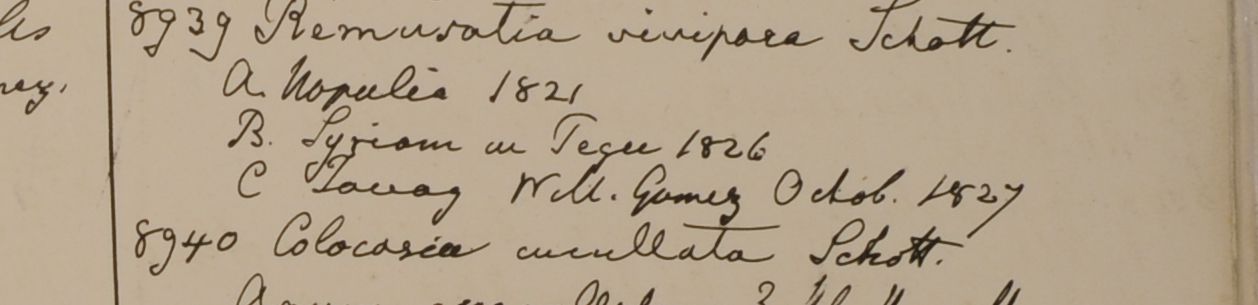 8939 Remusatia vivipara Schott.
A. Napalia 1821
B. Syriam in Pegu 1826
C Tavoy W. Gomez Octob. 1827
8940 Colocasia cucullata Schott.